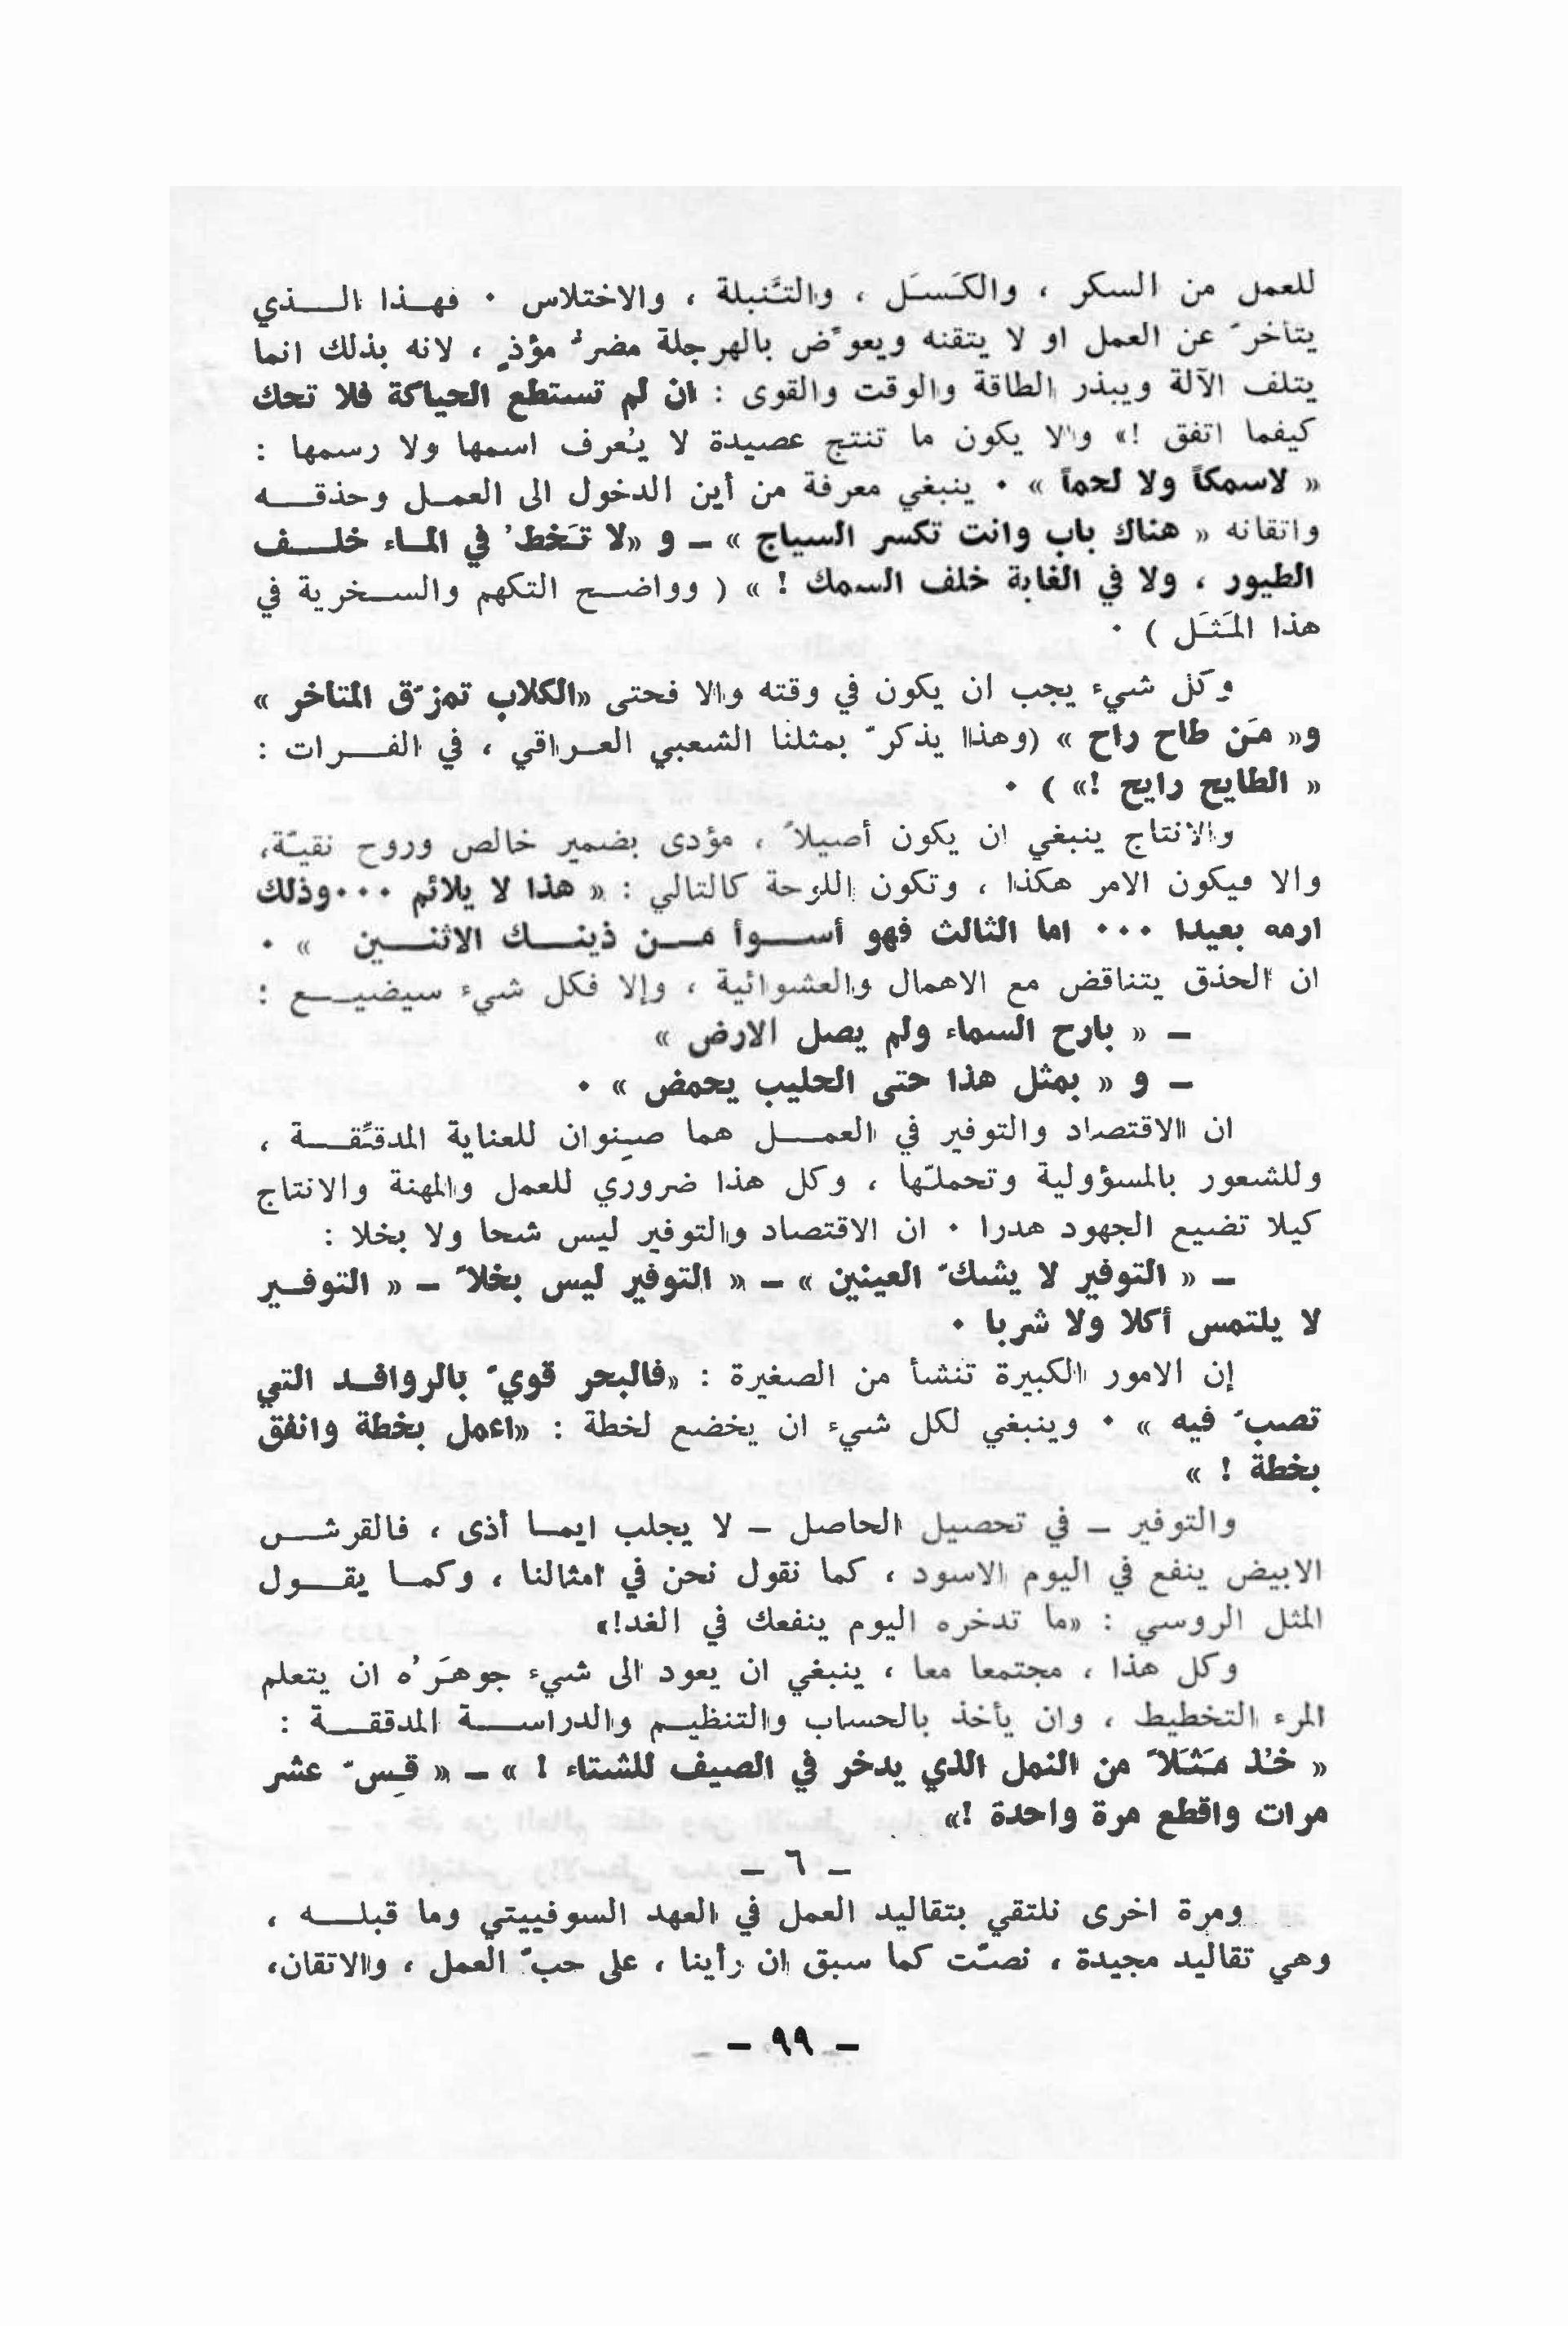 للعمل من السكر ، والكَسَل ، والتَّنبلة ، والاختلاس ٠ فهذا الذي
يتأخرّ عن العمل او لا يتقنه ويعوّض بالهرجلة مضرٌ مؤذٍ ، لانه بذلك انما
يتلف الآلة ويبذر الطاقة والوقت والقوى : ان لم تستطع الحياكة فلا تحك
كيفما اتفق !» والا يكون ما تنتج عصيدة لا يُعرف اسمها ولا رسمها :
« لاسمكاً ولا لحماً » ٠ ينبغي معرفة من أين الدخول الى العمل وحذقه
واتقانه « هناك باب وانت تكسر السياج » ــ و «لا تَخطْ في الماء خلف
الطيور ، ولا في الغابة خلف السمك ! » ( وواضح التكهم والسخرية في
هذا المَثَل ) ٠
وكل شيء يجب ان يكون في وقته والا فحتى «الكلاب تمزّق المتاخر »
و« مَن طاح راح » (وهذا يذكرّ بمثلنا الشعبي العراقي ، في الفرات :
« الطايح رايح !» ) ٠
والانتاج ينبغي ان يكون أصيلاً ، مؤدى بضمير خالص وروح نقيّة،
والا فيكون الامر هكذا ، وتكون اللوحة كالتالي : « هذا لا يلائم ٠٠٠وذلك
ارمه بعيدا ٠٠٠ اما الثالث فهو أسوأ من ذينك الاثنين » ٠
ان الحذق يتناقض مع الاهمال والعشوائية ، وإلا فكل شيء سيضيع :
ــ « بارح السماء ولم يصل الارض »
ــ و « بمثل هذا حتى الحليب يحمض » ٠
ان الاقتصاد والتوفير في العمل هما صِنوان للعناية المدقِّقة ،
وللشعور بالمسؤولية وتحملّها ، وكل هذا ضروري للعمل والمهنة والانتاج
كيلا تضيع الجهود هدرا ٠ ان الاقتصاد والتوفير ليس شحا ولا بخلا :
ــ « التوفير لا يشكّ العينين » ــ « التوفير ليس بخلاً ــ « التوفير
لا يلتمس أكلا ولا شربا ٠
إن الامور الكبيرة تنشأ من الصغيرة : «فالبحر قويّ بالروافد التي
تصبّ فيه » ٠ وينبغي لكل شيء ان يخضع لخطة : «اعمل بخطة وانفق
بخطة ! »
والتوفير ــ في تحصيل الحاصل ــ لا يجلب ايما أذى ، فالقرش
الابيض ينفع في اليوم الاسود ، كما نقول نحن في امثالنا ، وكما يقول
المثل الروسي : «ما تدخره اليوم ينفعك في الغد!»
وكل هذا ، مجتمعا معا ، ينبغي ان يعود الى شيء جوهَرُه ان يتعلم
المرء التخطيط ، وان يأخذ بالحساب والتنظيم والدراسة المدققة :
« خُذ مَثَلاً من النمل الذي يدخر في الصيف للشتاء ! » ــ « قِسّ عشر
مرات واقطع مرة واحدة !»
ــ ٦ ــ
ومرة اخرى نلتقي بتقاليد العمل في العهد السوفييتي وما قبله ،
وهي تقاليد مجيدة ، نصّت كما سبق ان رأينا ، على حبّ العمل ، والاتقان،
ــ ٩٩ ــ